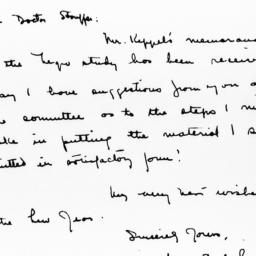 Doctor Stouffer:
Mr. Keppel's memorandu
the Negro study has been receiv
ay I have suggestions from you a
e committee as to the steps I m
ake in putting the material I s
itted in satisfactory form?
My very best wishes
the New Year.
Sincerely Yours,